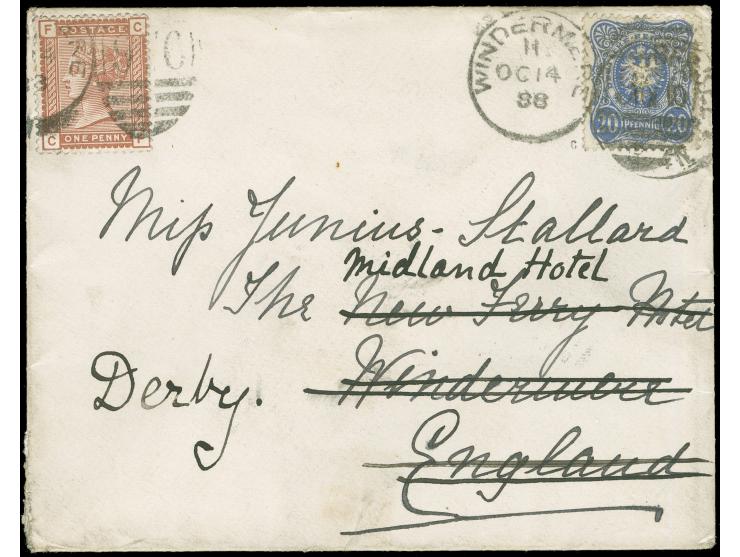 F C
POSTAGE
ONE PENNY
C F
WINDERMERE
11
OC 14
88
20 PFENNIG 20
Miss Junius-Stallard
Midland Hotel
The New Ferry Hotel
Derby. Windermere
England